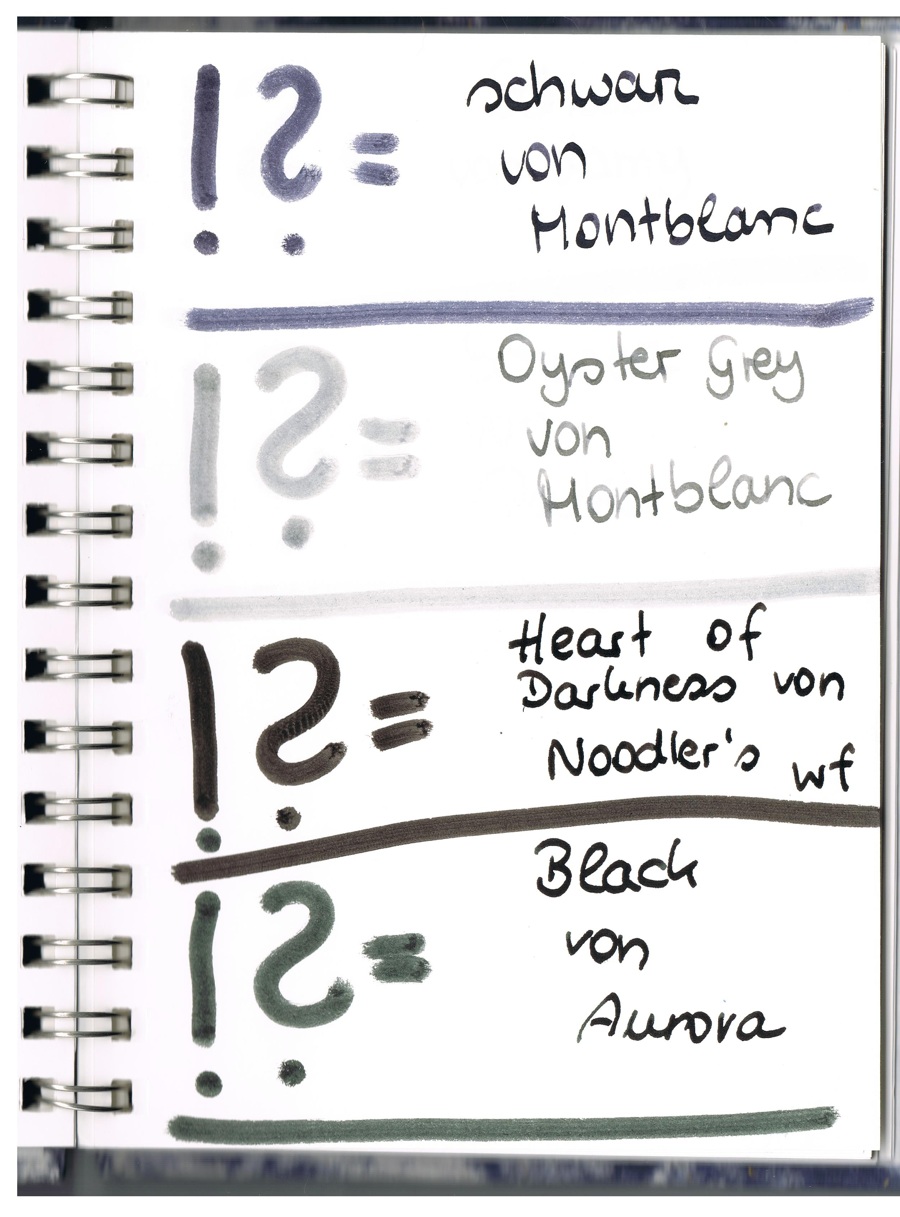 ! ? = schwarz
von
Montblanc
! ? = Oyster Grey
von
Montblanc
! ? = Heart of
Darkness von
Noodler's wf
! ? = Black
von
Aurora